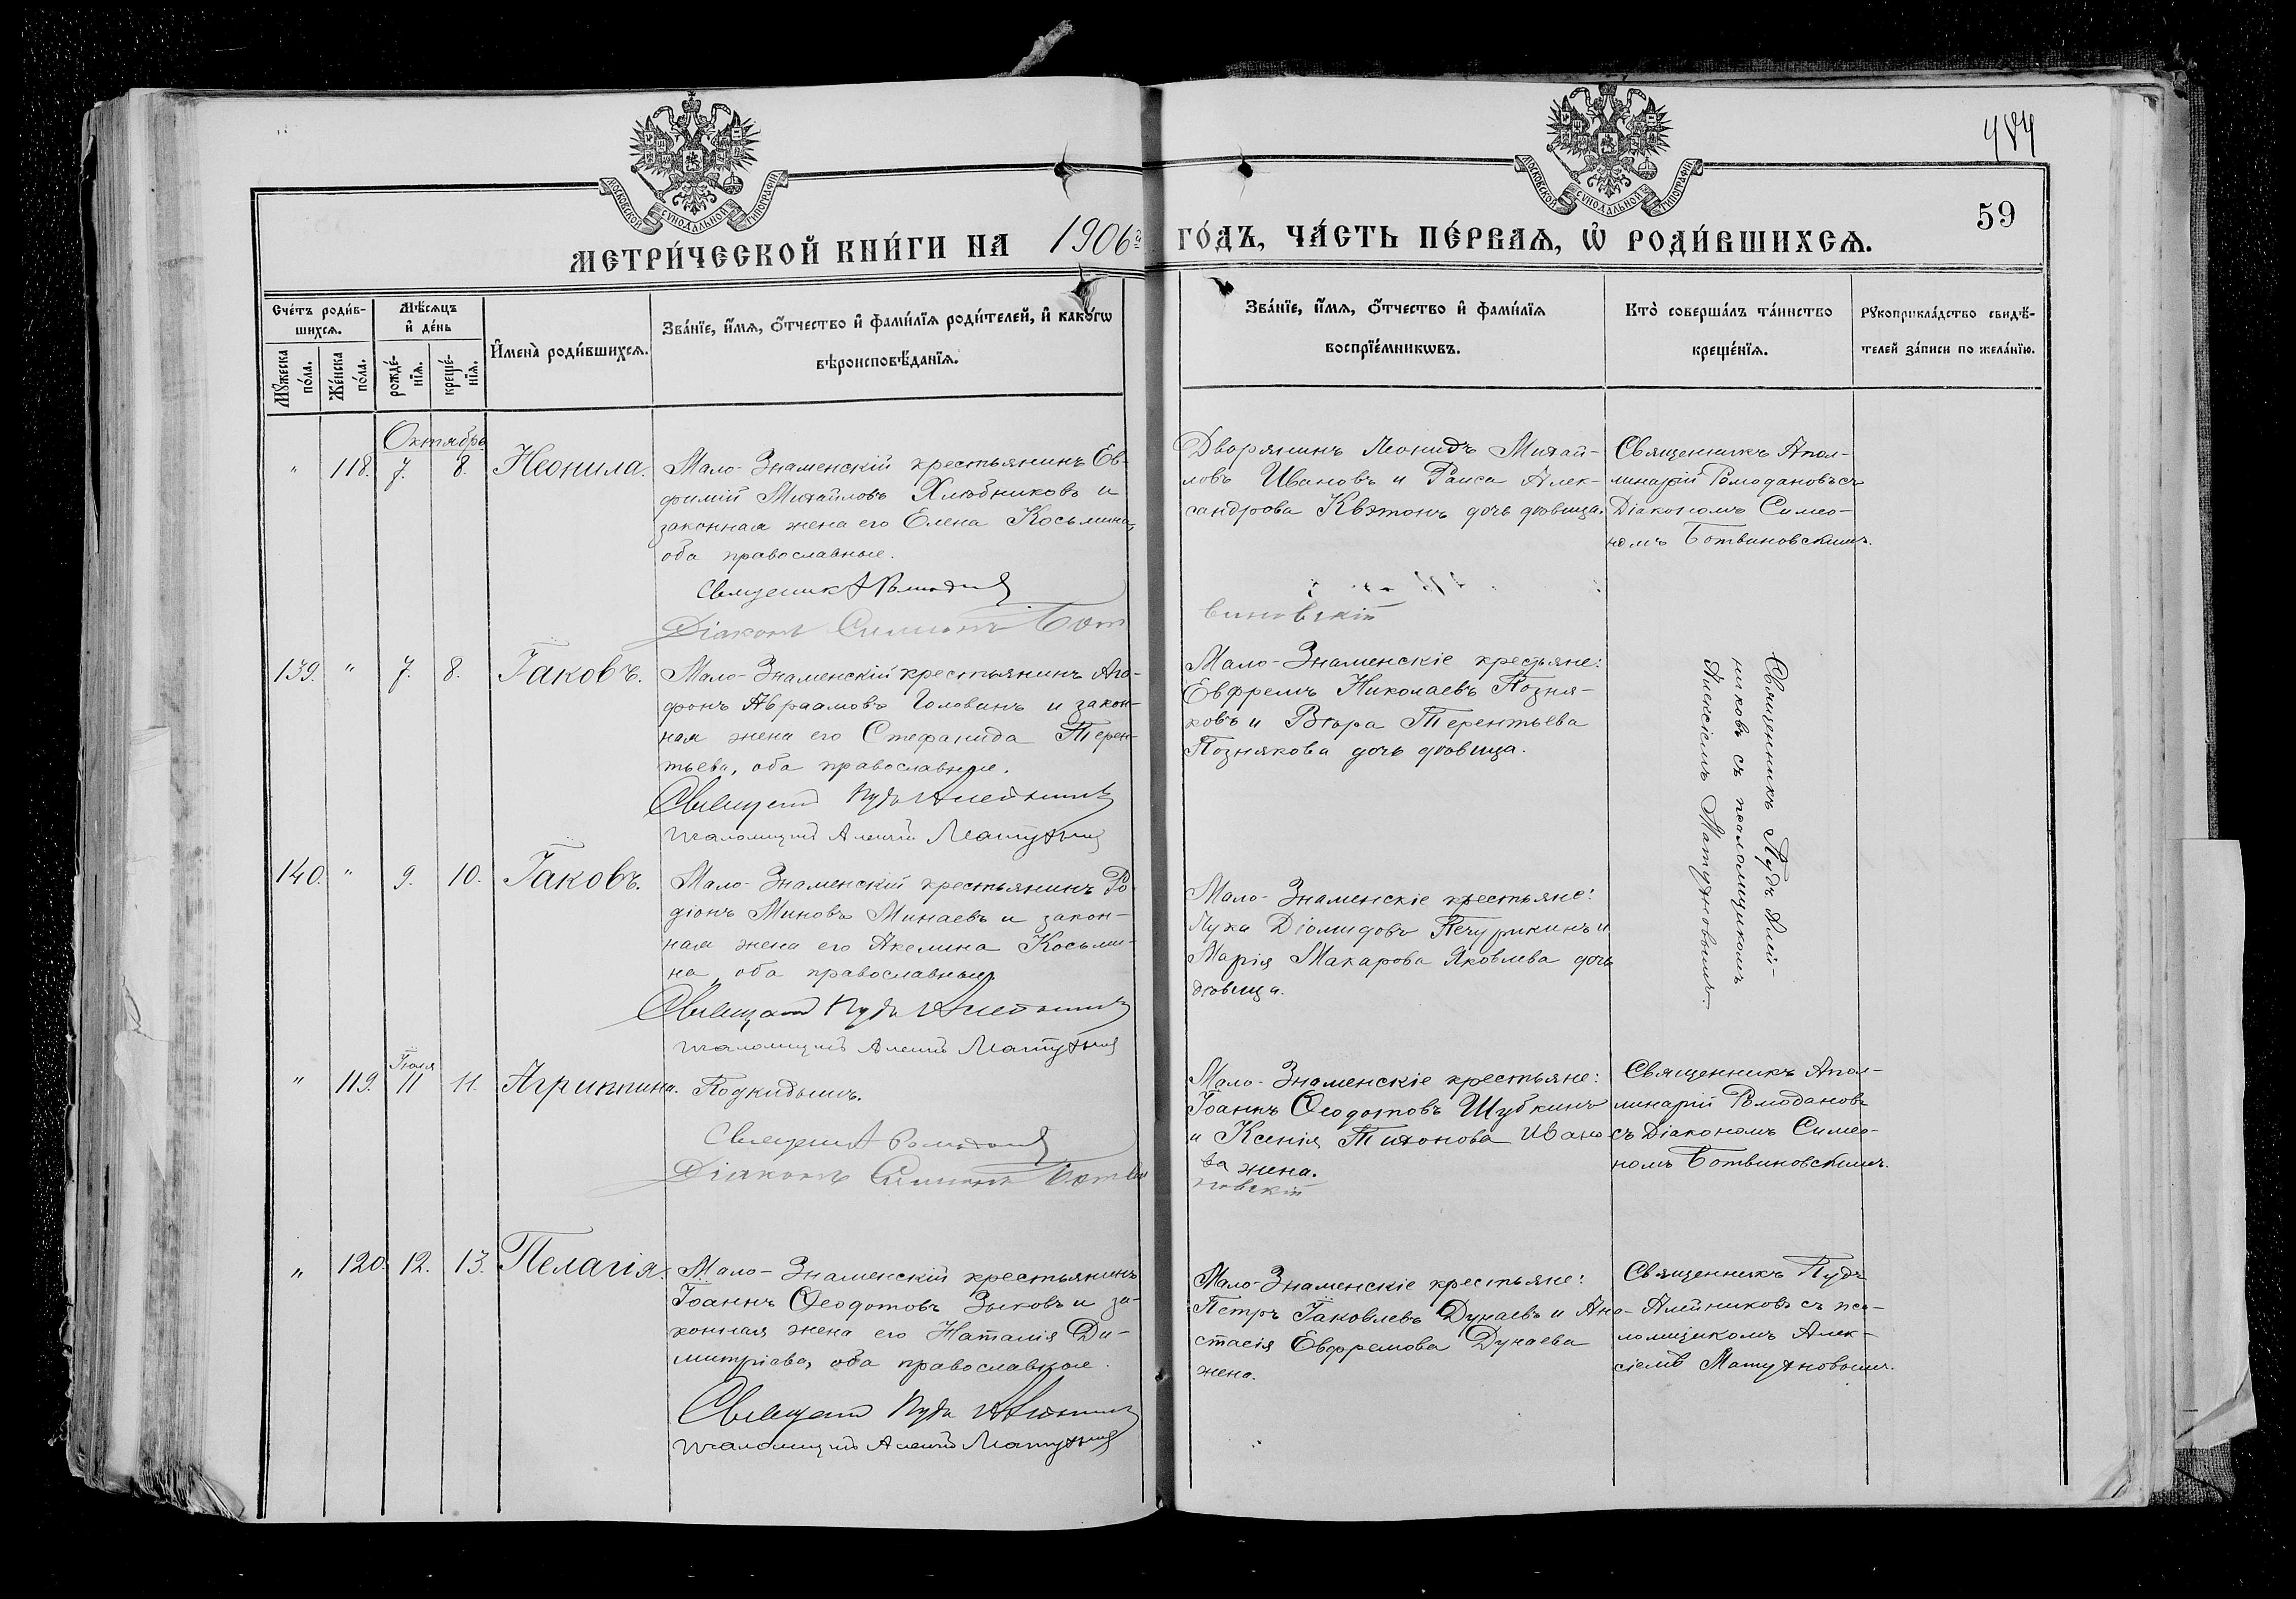 484
59
МОСКОВСКОЙ СѴНОДАЛЬНОЙ ТИПОГРАФІИ
МОСКОВСКОЙ СѴНОДАЛЬНОЙ ТИПОГРАФІИ
МЕТРИ́ЧЕСКОЙ КНИ́ГИ НА 1906й ГО́ДЪ, ЧА́СТЬ ПЕ́РВАѦ, Ѡ҆ РОДИ́ВШИХСѦ.
Сче́тъ роди́в-
шихсѧ.
Мꙋ́жеска по́ла.
Же́нска по́ла.
Мѣ́сѧцъ и҆ де́нь
рожде́-
нїѧ.
креще́-
нїѧ.
И҆мена̀ роди́вшихсѧ.
Зва́нїе, и҆́мѧ, ѻ҆́тчество и҆ фами́лїѧ роди́телей, и҆ како́гѡ
вѣроисповѣ́данїѧ.
Зва́нїе, и҆́мѧ, ѻ҆́тчество и҆ фами́лїѧ
воспрїе́мникѡвъ.
Кто̀ соверша́лъ та́инство
креще́нїѧ.
Рꙋкоприкла́дство свидѣ́-
телей за́писи по жела́нїю.
Октябрь
" 118. 7. 8. Неонила.
Мало-Знаменскій крестьянинъ Ев-
фимій Михайловъ Хлѣбниковъ и
законная жена его Елена Косьмина,
оба православные.
Священник А Ромоданов
Діаконъ Симеонъ Ботвиновскій
Дворянинъ Леонидъ Михай-
ловъ Ивановъ и Раиса Алек-
сандрова Квятонъ дочь дѣвица.
Священникъ Апол-
линарій Ромодановъ съ
Діакономъ Симео-
номъ Ботвиновскимъ.
139. " 7. 8. Іаковъ.
Мало-Знаменскій крестьянинъ Ага-
фонъ Авраамовъ Головинъ и закон-
ная жена его Стефанида Терен-
тьева, оба православные.
Священник Пудъ Алейников
псаломщикъ Алексій Матухнов
Мало-Знаменскіе крестьяне:
Евфремъ Николаевъ Позня-
ковъ и Вѣра Терентьева
Познякова дочь дѣвица.
Священникъ Пудъ Алей-
никовъ съ псаломщикомъ
Алексіемъ Матухновымъ.
140. " 9. 10. Іаковъ.
Мало-Знаменскій крестьянинъ Ро-
діонъ Миновъ Минаевъ и закон-
ная жена его Акелина Косьми-
на, оба православные.
Священник Пудъ Алейников
псаломщикъ Алексій Матухнов
Мало-Знаменскіе крестьяне:
Лука Діомидовъ Печурикинъ и
Марія Макарова Яковлева дочь
дѣвица.
Іюля
" 119. 11 11. Агриппина.
Подкидышъ.
Священник А Ромоданов
Діаконъ Симеонъ Ботвиновскій
Мало-Знаменскіе крестьяне:
Іоаннъ Ѳеодотовъ Шубкинъ
и Ксенія Тихонова Ивано-
ва жена.
Священникъ Апол-
линарій Ромодановъ
съ Діакономъ Симео-
номъ Ботвиновскимъ.
" 120. 12. 13. Пелагія.
Мало-Знаменскій крестьянинъ
Іоаннъ Ѳеодотовъ Зыковъ и за-
конная жена его Наталія Ди-
митріева, оба православные.
Священник Пудъ Алейников
псаломщикъ Алексій Матухнов
Мало-Знаменскіе крестьяне:
Петръ Іаковлевъ Дунаевъ и Ана-
стасія Евфремова Дунаева
жена.
Священникъ Пудъ
Алейниковъ съ пса-
ломщикомъ Алек-
сіемъ Матухновымъ.